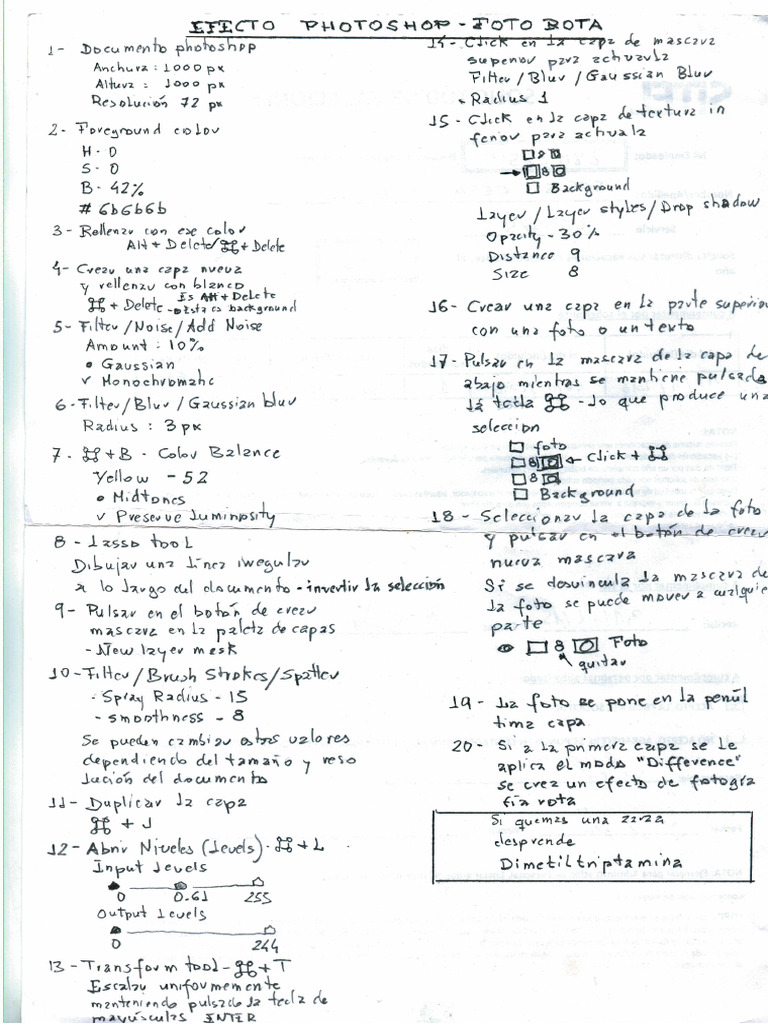 EFECTO PHOTOSHOP - FOTO ROTA
1- Documento photoshop
Anchura : 1000 px
Altura : 1000 px
Resolución 72 px
2- Foreground color
H - 0
S - 0
B - 42%
# 6b6b6b
3 - Rellenar con ese color
Alt + Delete/⌘ + Delete
4- Crear una capa nueva
y rellenar con blanco
Es Alt + Delete
⌘ + Delete - esta es background
5 - Filter/Noise/Add Noise
Amount : 10%
• Gaussian
✓ Monochromatic
6 - Filter/Blur/Gaussian blur
Radius : 3 px
7 - ⌘ + B - Color Balance
Yellow - 52
• Midtones
✓ Preserve luminosity
8 - Lasso tool
Dibujar una línea irregular
a lo largo del documento - invertir la selección
9 - Pulsar en el botón de crear
mascara en la paleta de capas
- New layer mask
10 - Filter/Brush Strokes/Spatter
- Spray Radius - 15
- smoothness - 8
Se pueden cambiar estos valores
dependiendo del tamaño y reso
lución del documento
11 - Duplicar la capa
⌘ + J
12 - Abrir Niveles (levels) - ⌘ + L
Input levels
0 0.61 255
Output levels
0 244
13 - Transform tool - ⌘ + T
Escalar uniformemente
manteniendo pulsado la tecla de
mayúsculas ENTER
14 - Click en la capa de mascara
superior para activarla
Filter/Blur/Gaussian Blur
- Radius 1
15 - Click en la capa de textura in
ferior para activala
8
8
Background
Layer/Layer styles/Drop shadow
Opacity - 30%
Distance 9
Size 8
16 - Crear una capa en la parte superior
con una foto o un texto
17 - Pulsar en la mascara de la capa de
abajo mientras se mantiene pulsada
la tecla ⌘ - lo que produce una
selección
foto
8 ← Click + ⌘
8
Background
18 - Seleccionar la capa de la foto
y pulsar en el botón de crear
nueva mascara
Si se desvincula la mascara de
la foto se puede mover a cualquier
parte
8 Foto
quitar
19 - La foto se pone en la penúl
tima capa
20 - Si a la primera capa se le
aplica el modo "Difference"
se crea un efecto de fotogra
fía rota
Si quemas una zarza
desprende
Dimetiltriptamina